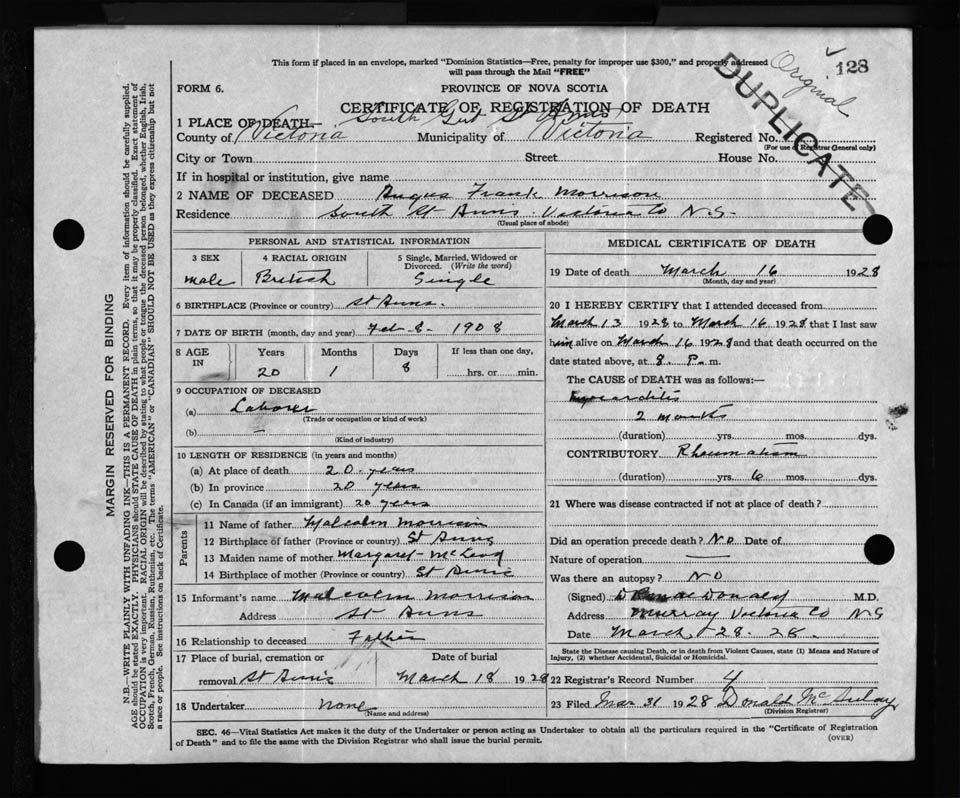 This form if placed in an envelope, marked "Dominion Statistics—Free, penalty for improper use $300," and properly addressed
will pass through the Mail "FREE"
Original
128
DUPLICATE
FORM 6.
PROVINCE OF NOVA SCOTIA
CERTIFICATE OF REGISTRATION OF DEATH
1 PLACE OF DEATH— South Gut St Anns
County of Victoria Municipality of Victoria Registered No.
(For use of Registrar General only)
City or Town Street House No.
If in hospital or institution, give name
2 NAME OF DECEASED Angus Frank Morrison
Residence South St Anns Victoria Co N.S.
(Usual place of abode)
PERSONAL AND STATISTICAL INFORMATION
3 SEX male
4 RACIAL ORIGIN British
5 Single, Married, Widowed or Divorced. (Write the word) Single
6 BIRTHPLACE (Province or country) St Anns.
7 DATE OF BIRTH (month, day and year) Feb-8-1908
8 AGE IN Years 20 Months 1 Days 8 If less than one day, hrs. or min.
9 OCCUPATION OF DECEASED
(a) Laborer
(Trade or occupation or kind of work)
(b) —
(Kind of industry)
10 LENGTH OF RESIDENCE (in years and months)
(a) At place of death 20 years
(b) In province 20 years
(c) In Canada (if an immigrant) 20 years
Parents
11 Name of father Malcolm Morrison
12 Birthplace of father (Province or country) St Anns
13 Maiden name of mother Margaret McLeod
14 Birthplace of mother (Province or country) St Anns
15 Informant's name Malcolm Morrison
Address St Anns
16 Relationship to deceased Father
17 Place of burial, cremation or removal St Anns
Date of burial March 18 1928
18 Undertaker none
(Name and address)
MEDICAL CERTIFICATE OF DEATH
19 Date of death March 16 1928
(Month, day and year)
20 I HEREBY CERTIFY that I attended deceased from
March 13 1928 to March 16 1928 that I last saw
him alive on March 16 1928 and that death occurred on the
date stated above, at 8. P. m.
The CAUSE of DEATH was as follows:—
2 months
(duration) yrs. mos. dys.
CONTRIBUTORY Rheumatism
(duration) yrs. 6 mos. dys.
21 Where was disease contracted if not at place of death?
Did an operation precede death? No Date of
Nature of operation —
Was there an autopsy? NO
(Signed) MacDonald M.D.
Address Murray Victoria Co NS
Date March 28-28.
State the Disease causing Death, or in death from Violent Causes, state (1) Means and Nature of
Injury, (2) whether Accidental, Suicidal or Homicidal.
22 Registrar's Record Number 4
23 Filed Mar 31 1928 Donald McAulay
(Division Registrar)
SEC. 46—Vital Statistics Act makes it the duty of the Undertaker or person acting as Undertaker to obtain all the particulars required in the "Certificate of Registration
of Death" and to file the same with the Division Registrar who shall issue the burial permit.
(OVER)
MARGIN RESERVED FOR BINDING
N.B.—WRITE PLAINLY WITH UNFADING INK—THIS IS A PERMANENT RECORD. Every item of information should be carefully supplied.
AGE should be stated EXACTLY. PHYSICIANS should STATE CAUSE OF DEATH in plain terms, so that it may be properly classified. Exact statement of
OCCUPATION is very important. RACIAL ORIGIN will be described by stating to what people or tongue the deceased person belonged, whether English, Irish,
Scotch, French, German, Russian, Ruthenian, etc. The terms "AMERICAN" or "CANADIAN" SHOULD NOT BE USED as they express citizenship but not
a race or people. See instructions on back of Certificate.